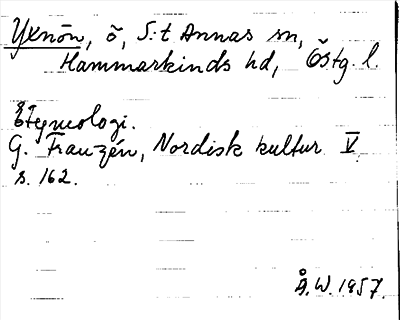 Yxnön, ö, S:t Annas sn,
Hammarkinds hd, Östg. l.
Etymologi.
G. Franzén, Nordisk kultur V
s. 162.
Å.W. 1957.